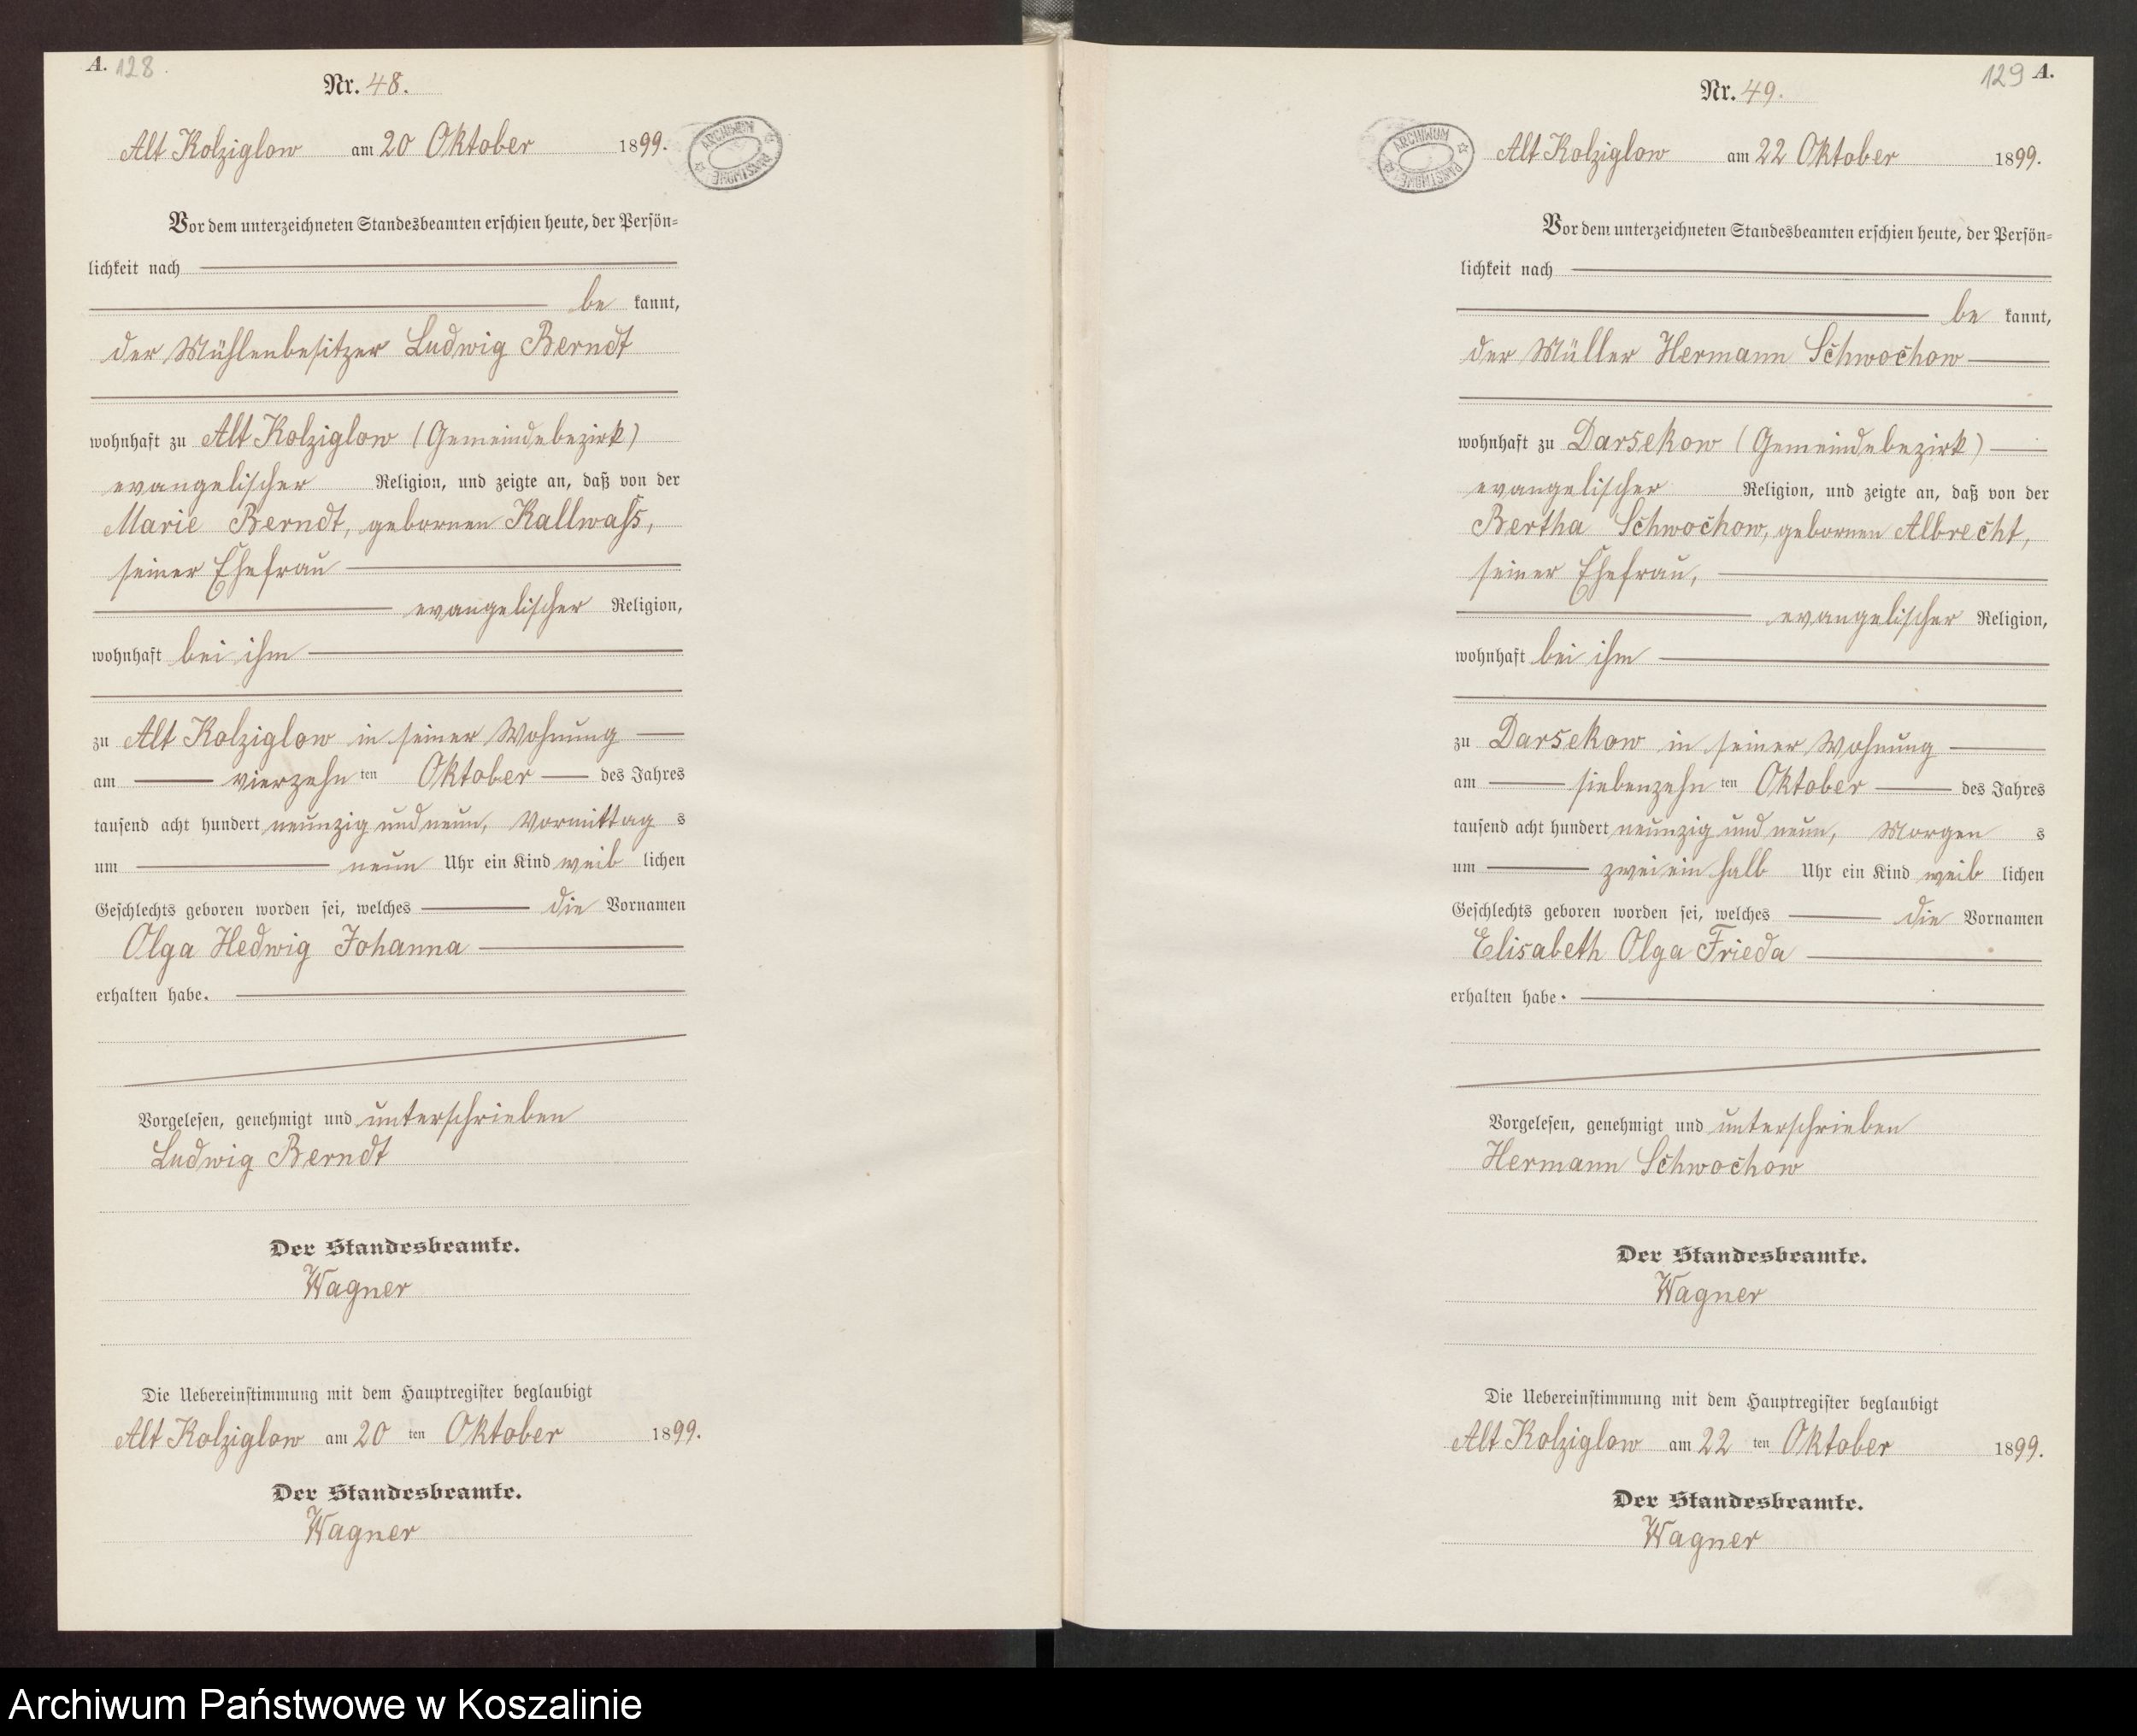 A. 128.
Nr. 48.
Alt Kolziglow am 20 Oktober 1899.
ARCHIWUM
Vor dem unterzeichneten Standesbeamten erschien heute, der Persön-
lichkeit nach
be kannt,
der Mühlenbesitzer Ludwig Berndt
wohnhaft zu Alt Kolziglow (Gemeindebezirk)
evangelischer Religion, und zeigte an, daß von der
Marie Berndt, gebornen Kallwaß,
seiner Ehefrau
evangelischer Religion,
wohnhaft bei ihm
zu Alt Kolziglow in seiner Wohnung
am vierzehn ten Oktober des Jahres
tausend acht hundert neunzig und neun, Vormittag s
um neun Uhr ein Kind weib lichen
Geschlechts geboren worden sei, welches die Vornamen
Olga Hedwig Johanna
erhalten habe.
Vorgelesen, genehmigt und unterschrieben
Ludwig Berndt
Der Standesbeamte.
Wagner
Die Uebereinstimmung mit dem Hauptregister beglaubigt
Alt Kolziglow am 20 ten Oktober 1899.
Der Standesbeamte.
Wagner
129 A.
Nr. 49.
ARCHIWUM
Alt Kolziglow am 22 Oktober 1899.
Vor dem unterzeichneten Standesbeamten erschien heute, der Persön-
lichkeit nach
be kannt,
der Müller Hermann Schwochow
wohnhaft zu Darsekow (Gemeindebezirk)
evangelischer Religion, und zeigte an, daß von der
Bertha Schwochow, gebornen Albrecht,
seiner Ehefrau,
evangelischer Religion,
wohnhaft bei ihm
zu Darsekow in seiner Wohnung
am siebenzehn ten Oktober des Jahres
tausend acht hundert neunzig und neun, Morgen s
um zwei ein halb Uhr ein Kind weib lichen
Geschlechts geboren worden sei, welches die Vornamen
Elisabeth Olga Frieda
erhalten habe.
Vorgelesen, genehmigt und unterschrieben
Hermann Schwochow
Der Standesbeamte.
Wagner
Die Uebereinstimmung mit dem Hauptregister beglaubigt
Alt Kolziglow am 22 ten Oktober 1899.
Der Standesbeamte.
Wagner
Archiwum Państwowe w Koszalinie